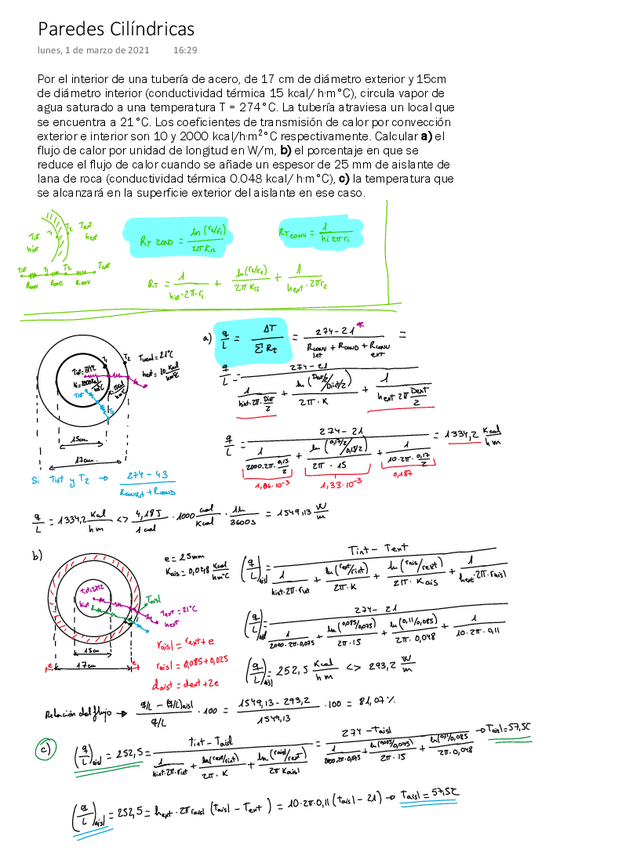 Paredes Cilíndricas
lunes, 1 de marzo de 2021 16:29
Por el interior de una tubería de acero, de 17 cm de diámetro exterior y 15cm
de diámetro interior (conductividad térmica 15 kcal/ h·m°C), circula vapor de
agua saturado a una temperatura T = 274°C. La tubería atraviesa un local que
se encuentra a 21°C. Los coeficientes de transmisión de calor por convección
exterior e interior son 10 y 2000 kcal/h·m²°C respectivamente. Calcular a) el
flujo de calor por unidad de longitud en W/m, b) el porcentaje en que se
reduce el flujo de calor cuando se añade un espesor de 25 mm de aislante de
lana de roca (conductividad térmica 0.048 kcal/ h·m°C), c) la temperatura que
se alcanzará en la superficie exterior del aislante en ese caso.
Tint hint T1 T2 Text hext
Tint T1 T2 Text
Rconv Rcond Rconv
RT COND = ln(r2/r1) / 2πK12
RT CONV = 1 / hi 2π ri
RT = 1 / hint·2π·r1 + ln(r2/r1) / 2πK12 + 1 / hext·2πr2
a) q/L = ΔT / Σ Rt = 274-21 / Rconv int + Rcond + Rconv ext =
Tlocal = 21°C
hext = 10 Kcal/hm²C
15cm
17cm
q/L = 274-21 / 1 / hint·2π·Dint/2 + ln(Dext/2 / Dint/2) / 2π·K + 1 / hext 2π Dext/2
q/L = 274-21 / 1 / 2000·2π·0,15/2 + ln(0,17/2 / 0,15/2) / 2π·15 + 1 / 10·2π·0,17/2 = 1334,2 Kcal/hm
1,06·10⁻³ 1,33·10⁻³ 0,187
Si Tint y T2 → 274-43 / Rconv + Rcond
q/L = 1334,2 Kcal/hm <> 4,18J/1cal · 1000 cal/Kcal · 1h/3600s = 1549,13 W/m
b)
e = 25mm
Kais = 0,048 Kcal/hm°C
Taisl
Text = 21°C
hext
15cm
17cm
e e
raisl = rext + e
raisl = 0,085 + 0,025
daisl = dext + 2e
(q/L)aisl = Tint - Text / 1 / hint·2π·rint + ln(rext/rint) / 2π·K + ln(rais/rext) / 2π·Kais + 1 / hext·2π·raisl
(q/L)aisl = 274-21 / 1 / 2000·2π·0,075 + ln(0,085/0,075) / 2π·15 + ln(0,11/0,085) / 2π·0,048 + 1 / 10·2π·0,11
(q/L)aisl = 252,5 Kcal/hm <> 293,2 W/m
Relación del flujo → q/L - (q/L)aisl / q/L · 100 = 1549,13 - 293,2 / 1549,13 · 100 = 81,07%
c) (q/L)aisl = 252,5 = Tint - Taisl / 1 / hint·2π·rint + ln(rext/rint) / 2π·K + ln(raisl/rext) / 2πKaisl = 274 - Taisl / 1 / 2000·2π·0,075 + ln(0,085/0,075) / 2π·15 + ln(0,11/0,085) / 2π·0,048 → Taisl = 57,5C
(q/L)aisl = 252,5 = hext·2πraisl (Taisl - Text) = 10·2π·0,11 (Taisl - 21) → Taisl = 57,5C